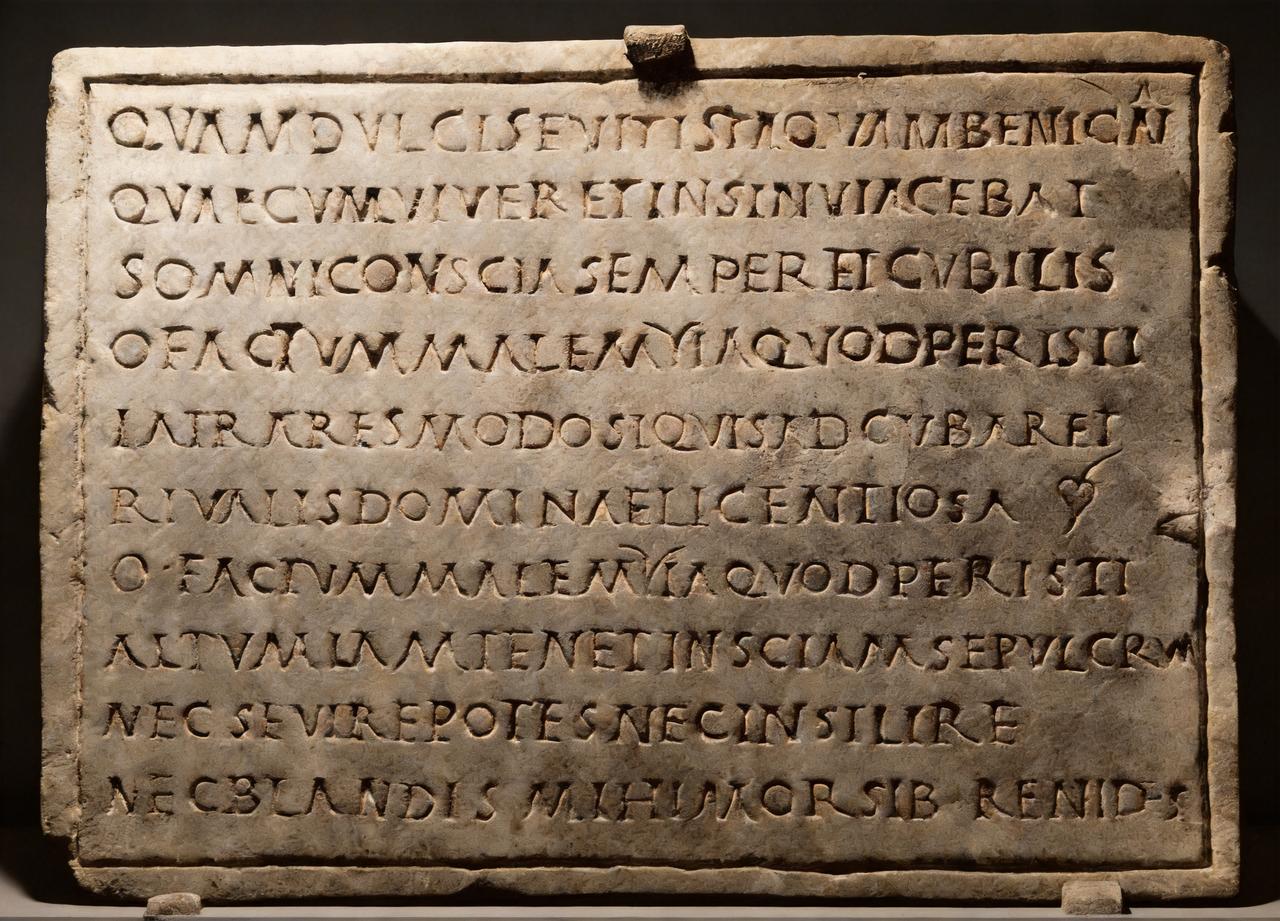 QVAMDVLCISFVITISTAQVAMBENIGNA
QVAECVMVIVERETINSINVIACEBAT
SOMNICONSCIASEMPERETCVBILIS
OFACTVMMALEMYIAQVODPERISTI
LATRARESMODOSIQVISADCVBARET
RIVALISDOMINAELICENTIOSA ❦
O·FACTVMMALEMYIAQVODPERISTI
ALTVMIAMTENETINSCIAMSEPVLCRVM
NECSEVIREPOTESNECINSILIRE
NECBLANDIS MIHIMORSIB·RENIDES